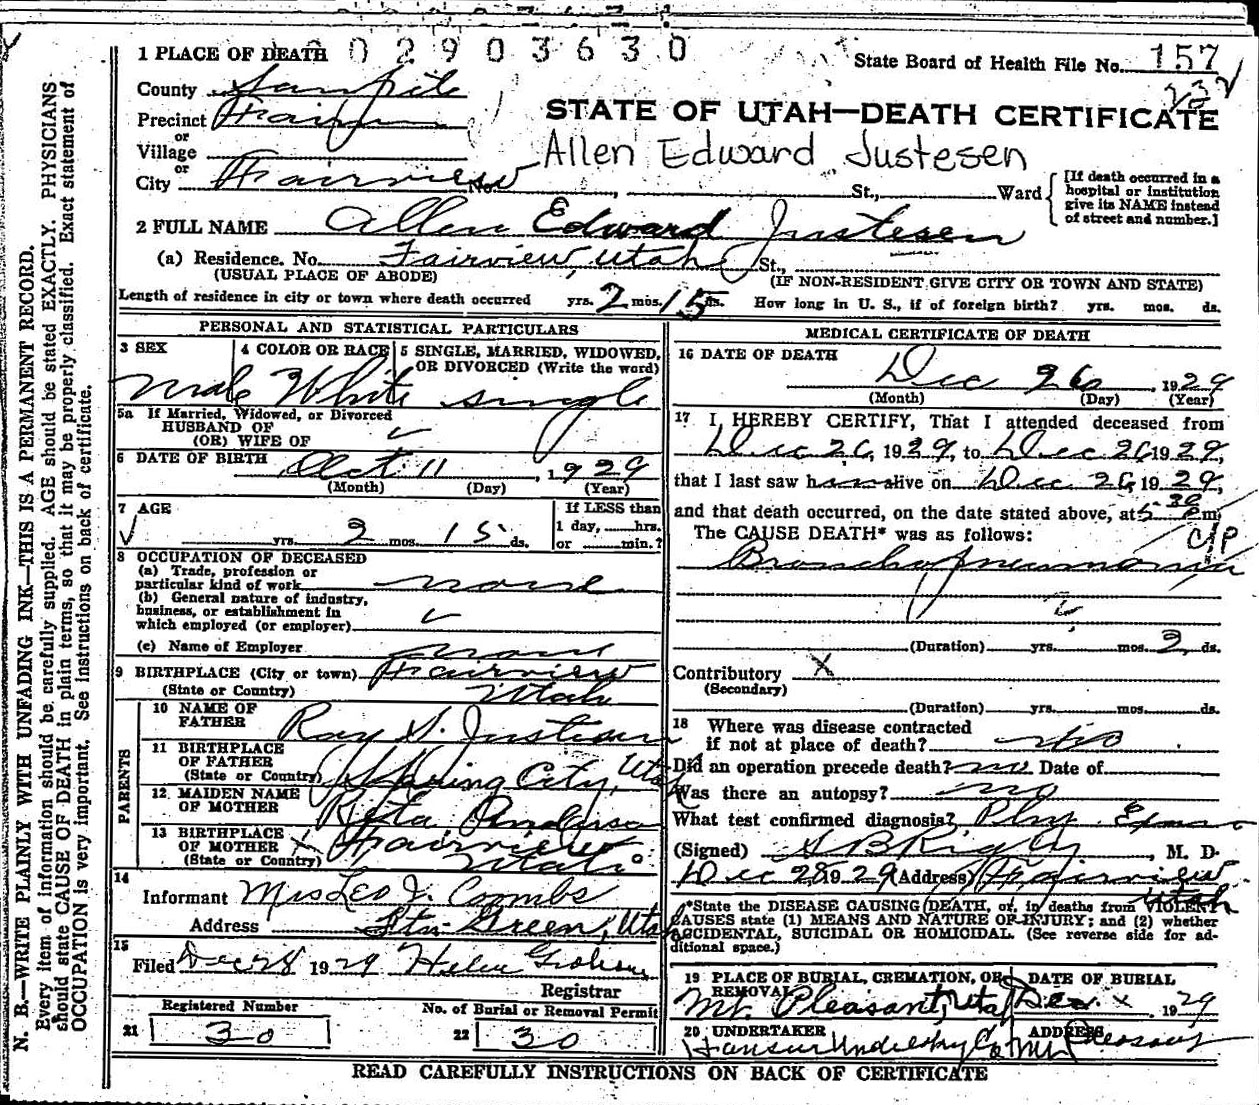 1 PLACE OF DEATH 0 0 2 9 0 3 6 3 0
State Board of Health File No. 157
232
County Sanpete
STATE OF UTAH—DEATH CERTIFICATE
Precinct
or
Village
Allen Edward Justesen
or
City Fairview No. , St., Ward
[If death occurred in a
hospital or institution
give its NAME instead
of street and number.]
2 FULL NAME Allen Edward Justesen
(a) Residence. No. Fairview, Utah St.,
(USUAL PLACE OF ABODE) (IF NON-RESIDENT GIVE CITY OR TOWN AND STATE)
Length of residence in city or town where death occurred yrs. 2 mos. 15 ds. How long in U. S., if of foreign birth? yrs. mos. ds.
PERSONAL AND STATISTICAL PARTICULARS
3 SEX 4 COLOR OR RACE 5 SINGLE, MARRIED, WIDOWED,
OR DIVORCED (Write the word)
Male White single
5a If Married, Widowed, or Divorced
HUSBAND OF
(OR) WIFE OF
6 DATE OF BIRTH Oct 11, 1929
(Month) (Day) (Year)
7 AGE If LESS than
1 day, hrs.
yrs. 2 mos. 15 ds. or min.?
8 OCCUPATION OF DECEASED
(a) Trade, profession or
particular kind of work none
(b) General nature of industry,
business, or establishment in
which employed (or employer)
(c) Name of Employer none
9 BIRTHPLACE (City or town) Fairview
(State or Country) Utah
PARENTS
10 NAME OF
FATHER Ray S. Justesen
11 BIRTHPLACE
OF FATHER
(State or Country) Spring City, Utah
12 MAIDEN NAME
OF MOTHER Reta Anderson
13 BIRTHPLACE
OF MOTHER X Fairview
(State or Country) Utah
14
Informant Mrs Leo J. Coombs
Address Ftn. Green, Utah
15
Filed Dec 28 1929 Helen
Registrar
Registered Number No. of Burial or Removal Permit
21 30 22 30
MEDICAL CERTIFICATE OF DEATH
16 DATE OF DEATH
Dec 26, 1929
(Month) (Day) (Year)
17 I HEREBY CERTIFY, That I attended deceased from
Dec 26, 1929, to Dec 26 1929,
that I last saw h alive on Dec 26, 1929,
and that death occurred, on the date stated above, at 5-30 P m.
The CAUSE DEATH* was as follows:
Broncho pneumonia
(Duration) yrs. mos. 2 ds.
Contributory X
(Secondary)
(Duration) yrs. mos. ds.
18 Where was disease contracted
if not at place of death? no
Did an operation precede death? no Date of
Was there an autopsy? no
What test confirmed diagnosis? Phy Exam
(Signed) A B Rigby, M. D.
Dec 28 1929 (Address) Fairview
Utah
*State the DISEASE CAUSING DEATH, or, in deaths from VIOLENT
CAUSES state (1) MEANS AND NATURE OF INJURY; and (2) whether
ACCIDENTAL, SUICIDAL OR HOMICIDAL. (See reverse side for ad-
ditional space.)
19 PLACE OF BURIAL, CREMATION, OR DATE OF BURIAL
REMOVAL
Mt. Pleasant, Utah Dec. X 1929
20 UNDERTAKER ADDRESS
Mt Pleasant
READ CAREFULLY INSTRUCTIONS ON BACK OF CERTIFICATE
N. B.—WRITE PLAINLY WITH UNFADING INK—THIS IS A PERMANENT RECORD.
Every item of information should be carefully supplied. AGE should be stated EXACTLY. PHYSICIANS
should state CAUSE OF DEATH in plain terms, so that it may be properly classified. Exact statement of
OCCUPATION is very important. See instructions on back of certificate.